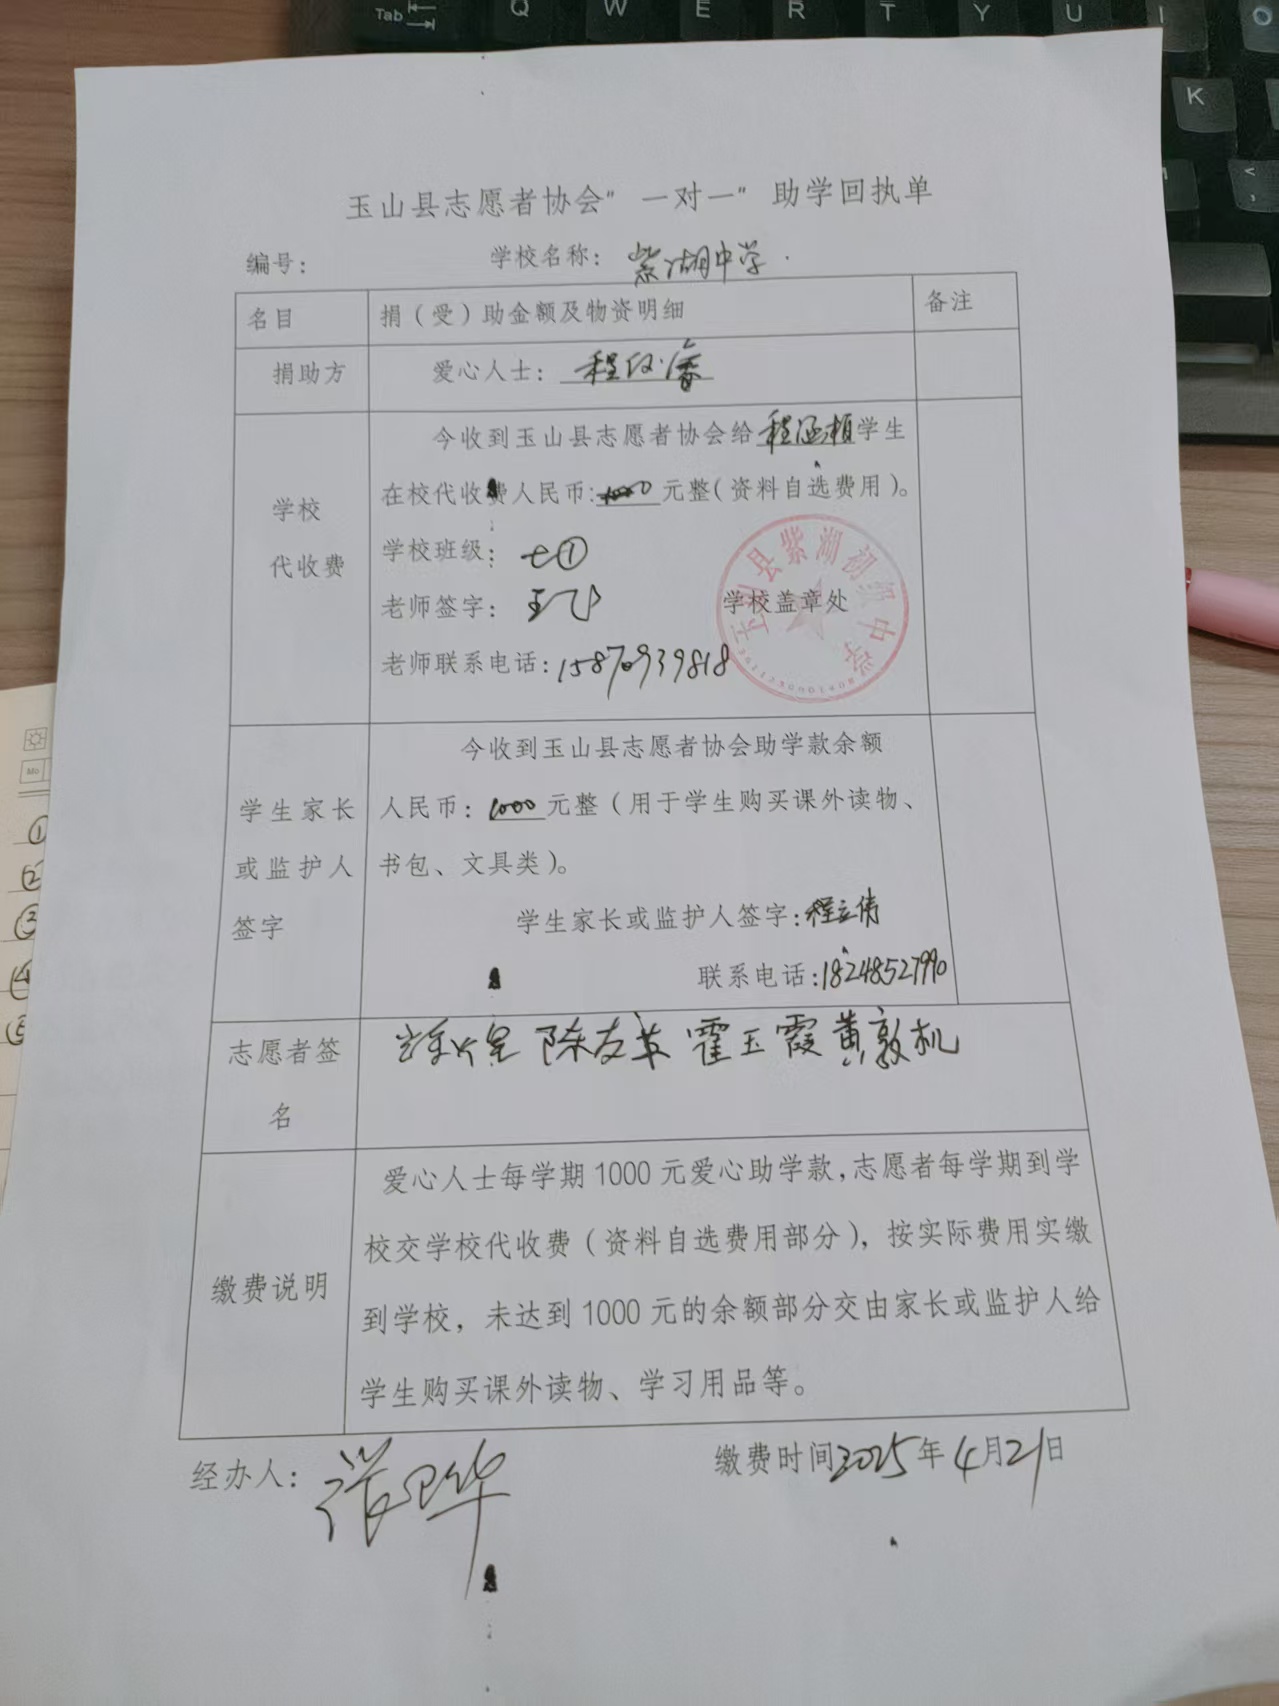 Tab
Q W E R T Y U I O
K
M
<
,
玉山县志愿者协会"一对一"助学回执单
编号:
学校名称: 紫湖中学
名目
捐(受)助金额及物资明细
备注
捐助方
爱心人士: 程
学校
代收费
今收到玉山县志愿者协会给程涵植学生
在校代收费人民币: 元整(资料自选费用)。
学校班级: 七①
老师签字: 王飞
老师联系电话: 15870939818
学校盖章处
玉山县紫湖初级中学
学生家长
或监护人
签字
今收到玉山县志愿者协会助学款余额
人民币: 1000元整(用于学生购买课外读物、
书包、文具类)。
学生家长或监护人签字: 程立伟
联系电话: 18248527990
志愿者签
名
陈友英 霍玉霞 黄敦机
缴费说明
爱心人士每学期1000元爱心助学款,志愿者每学期到学
校交学校代收费(资料自选费用部分),按实际费用实缴
到学校,未达到1000元的余额部分交由家长或监护人给
学生购买课外读物、学习用品等。
经办人:
缴费时间2025年4月21日
Mo
①
②
③
④
⑤